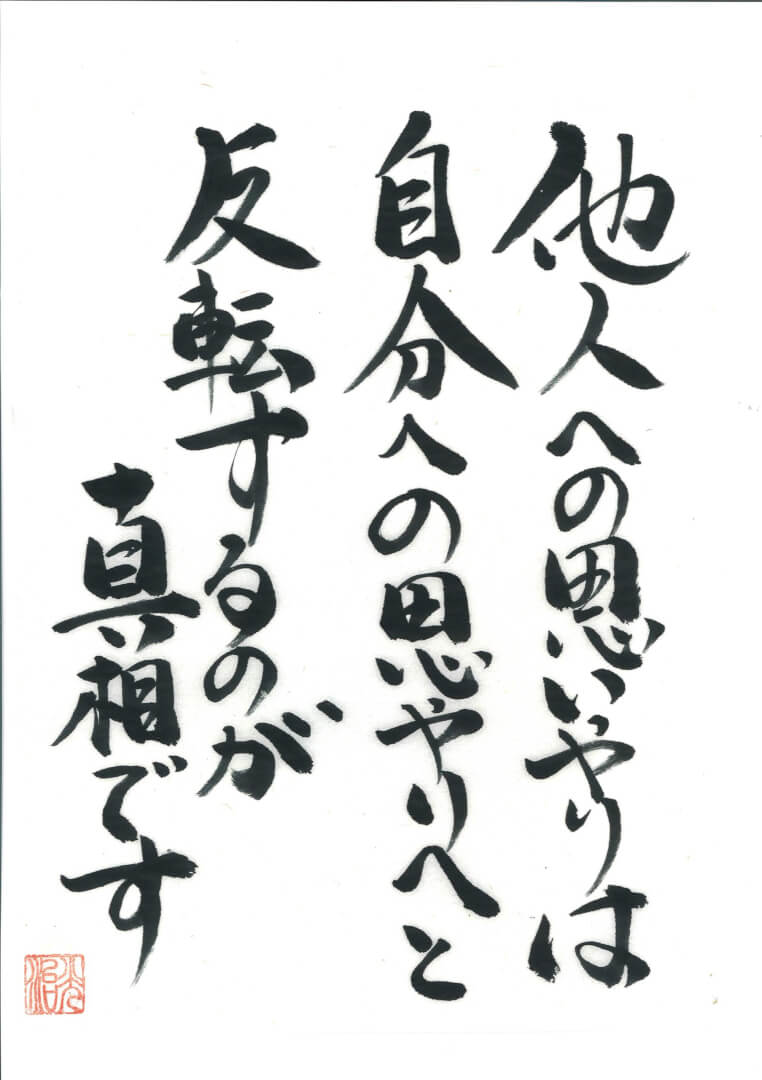 他人への思いやりは
自分への思やりへと
反転するのが
真相です